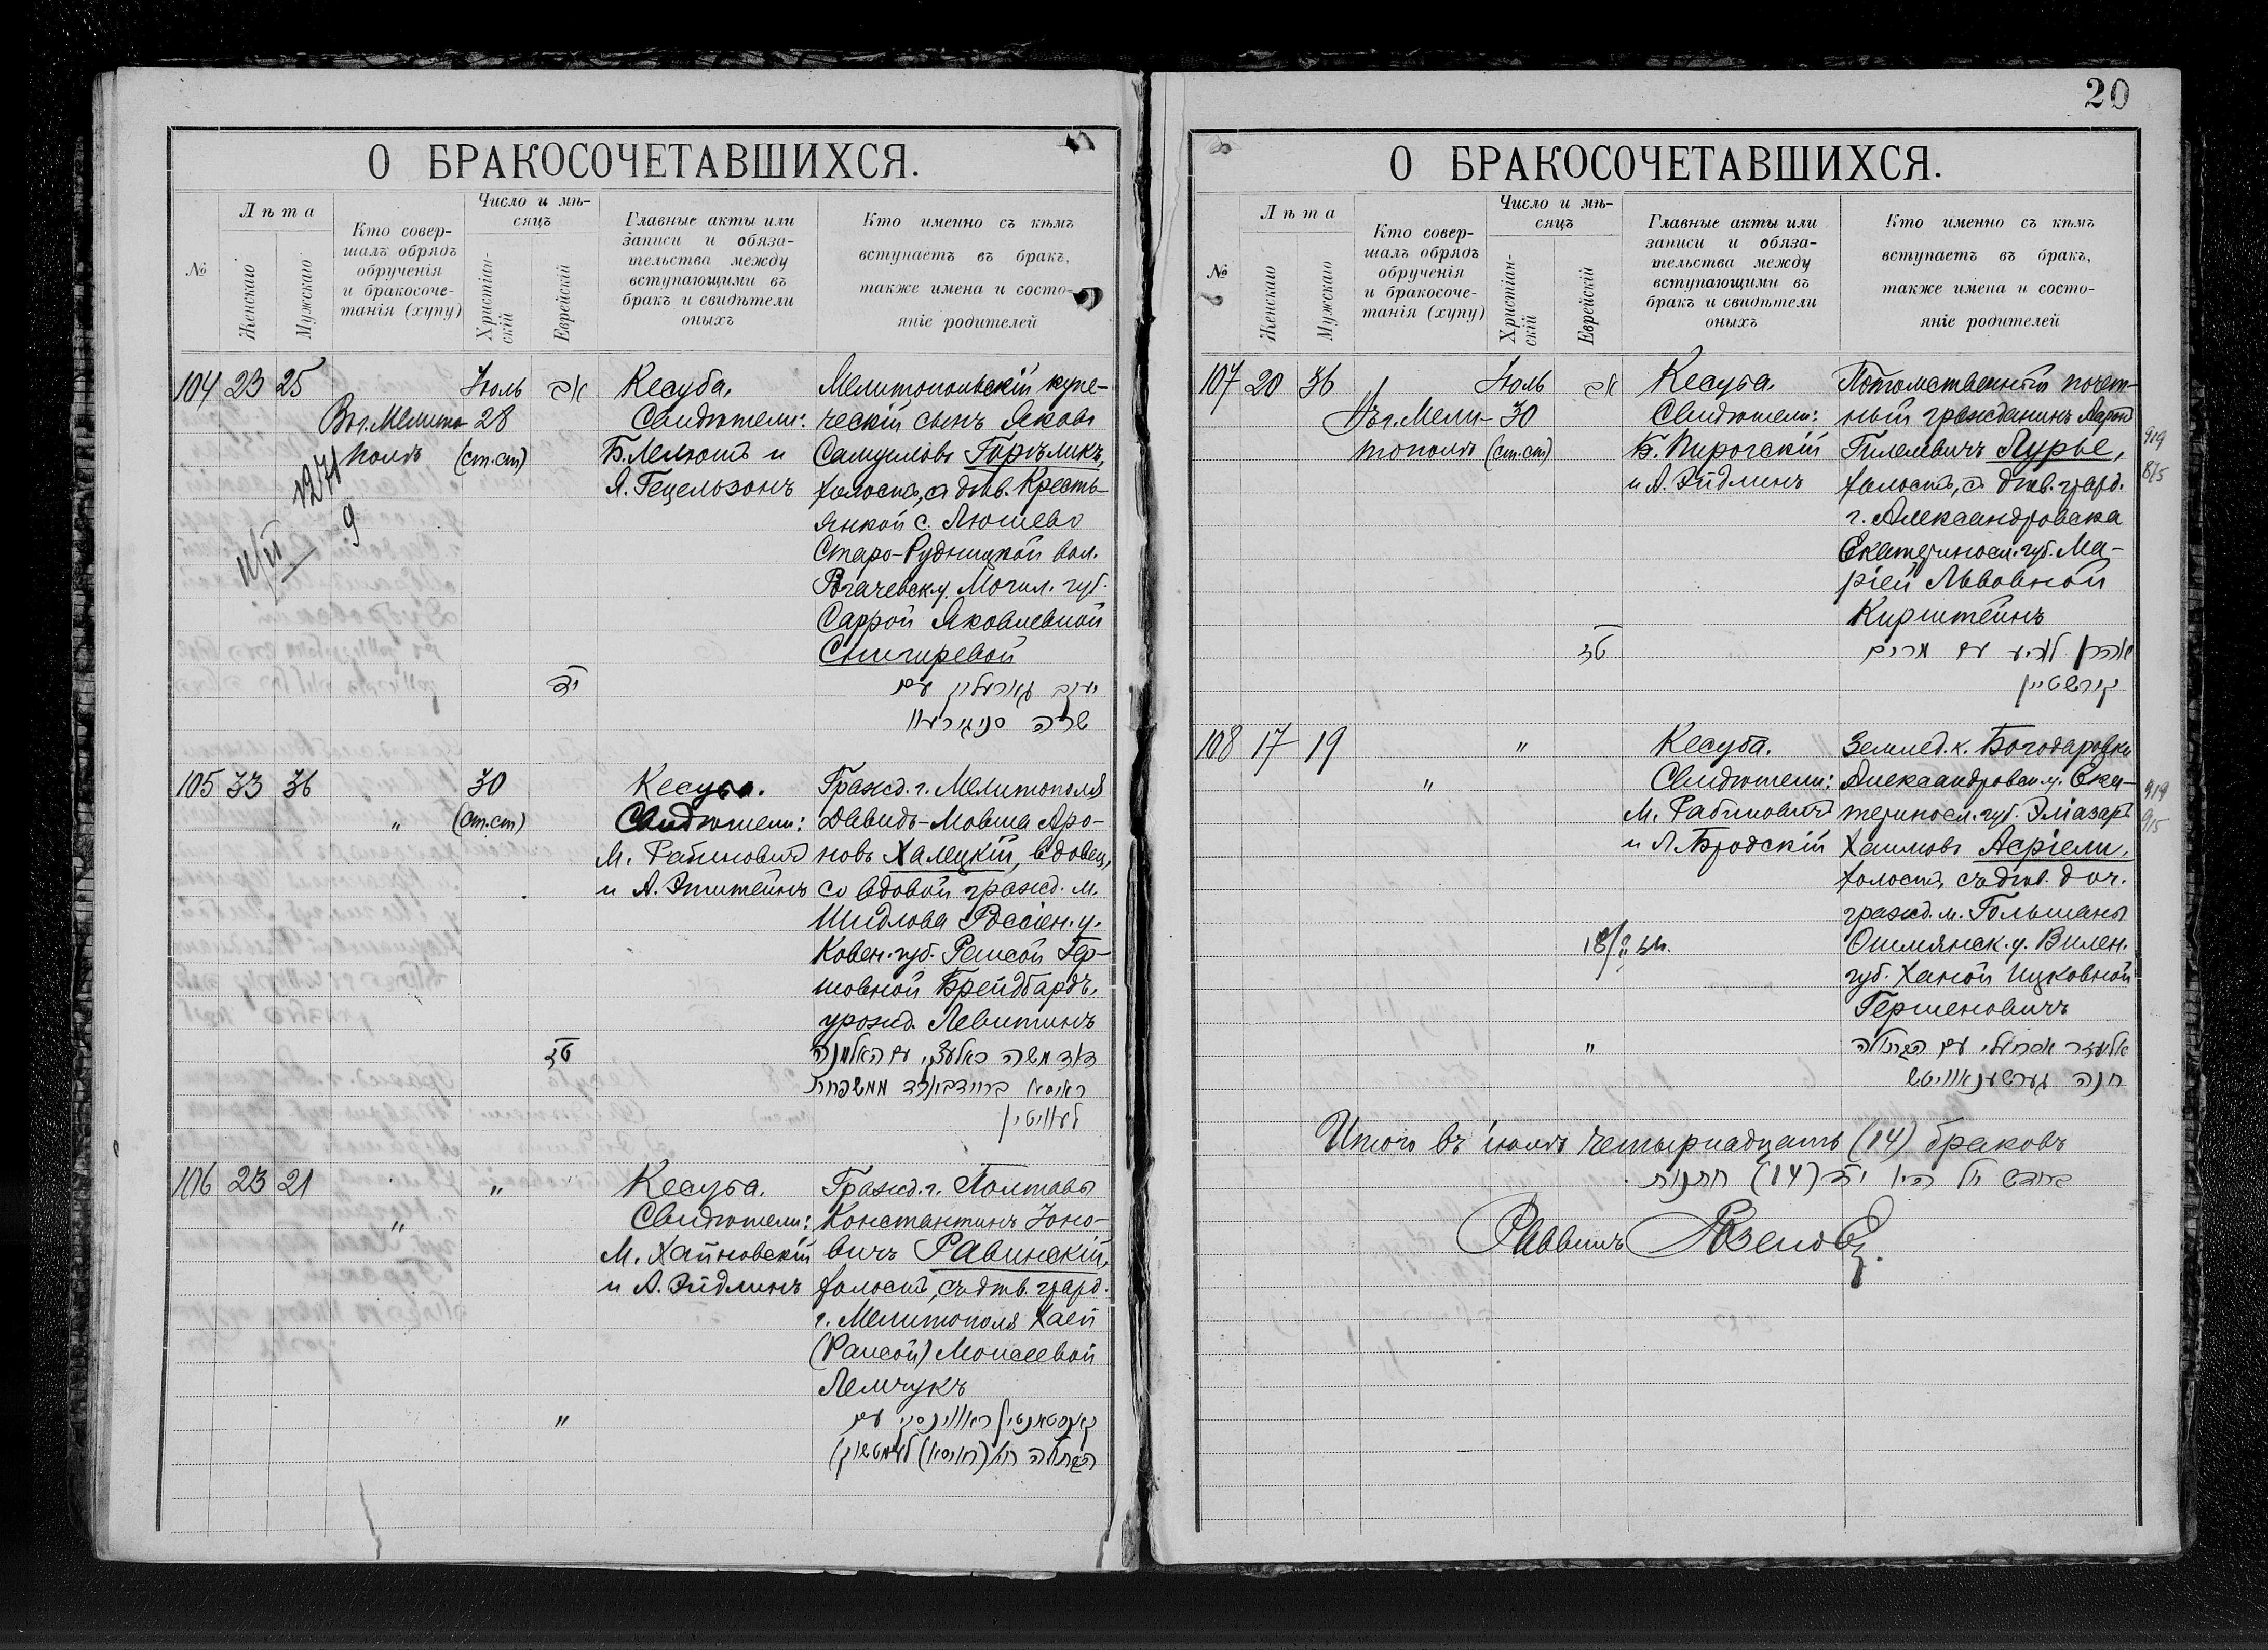 20
О БРАКОСОЧЕТАВШИХСЯ.
№
Лѣта
Женскаго
Мужскаго
Кто совер-
шалъ обрядъ
обрученія
и бракосоче-
танія (хупу)
Число и мѣ-
сяцъ
Христіан-
скій
Еврейскій
Главные акты или
записи и обяза-
тельства между
вступающими въ
бракъ и свидѣтели
оныхъ
Кто именно съ кѣмъ
вступаетъ въ бракъ,
также имена и состо-
яніе родителей
104 23 25
Въ г. Мелито-
полѣ
Іюль
28
(ст.ст)
אב
יד
Кесуба.
Свидѣтели:
Б. Лемютъ и
Я. Гецельзонъ
Мелитопольскій купе-
ческій сынъ Яковъ
Самуиловъ Горѣликъ,
холостъ, съ дѣв. Кресть-
янкой с. Люшево
Старо-Рудницкой вол.
Рогачевск.у. Могил. губ.
Саррой Яковлевной
Снигиревой
יעקב גארעליק עם
שרה סניגירעוו
1271
9
105 33 36
"
30
(ст.ст)
טז
Кесуба.
Свидѣтели:
М. Рабиновичъ
и А. Эпштейнъ
Гражд. г. Мелитополя
Давидъ-Мовша Аро-
новъ Халецкій, вдовец,
со вдовой гражд. м.
Шидлова Россіен. у.
Ковен. губ. Раисой Гер-
шовной Брейдбардъ,
урожд. Левитинъ
דוד משה כאלעצקי עם האלמנה
ראיסא ברוידבארד ממשפחת
לעוויטין
106 23 21
"
"
"
Кесуба.
Свидѣтели:
М. Хайновскій
и А. Эйдлинъ
Гражд. г. Полтавы
Константинъ Іоно-
вичъ Равинскій,
холостъ, съ дѣв. гражд.
г. Мелитополя Хаей
(Раисой) Моисеевой
Лемчукъ
קאנסטאנטין ראווינסקי עם
הבתולה חיה (ראיסא) לעמטשוק
О БРАКОСОЧЕТАВШИХСЯ.
№
Лѣта
Женскаго
Мужскаго
Кто совер-
шалъ обрядъ
обрученія
и бракосоче-
танія (хупу)
Число и мѣ-
сяцъ
Христіан-
скій
Еврейскій
Главные акты или
записи и обяза-
тельства между
вступающими въ
бракъ и свидѣтели
оныхъ
Кто именно съ кѣмъ
вступаетъ въ бракъ,
также имена и состо-
яніе родителей
107 20 36
Въ г. Мели-
тополѣ
Іюль
30
(ст.ст)
אב
טז
Кесуба.
Свидѣтели:
Б. Пирогскій
и А. Эйдлинъ
Потомственный почет-
ный гражданинъ Аарон
Гилелевичъ Лурье,
холостъ, съ дѣв. гражд.
г. Александровска
Екатериносл. губ. Ма-
ріей Львовной
Кирштейнъ
אהרן לוריע עם מרים
קירשטיין
919
875
108 17 19
"
"
"
Кесуба.
Свидѣтели:
М. Рабиновичъ
и Л. Бродскій
Землед. к. Богодаровки
Александровск.у. Ека-
териносл. губ. Эліазаръ
Хаимовъ Асріели,
холостъ, съ дѣв. доч.
гражд. м. Гольшаны
Ошмянск. у. Вилен.
губ. Ханой Ицковной
Гершеновичъ
אליעזר אסריאלי עם הבתולה
חנה גערשענאוויטש
919
915
Итого въ іюлѣ четырнадцать (14) браковъ
בחודש יול היו י״ד (14) חתנות
Раввинъ